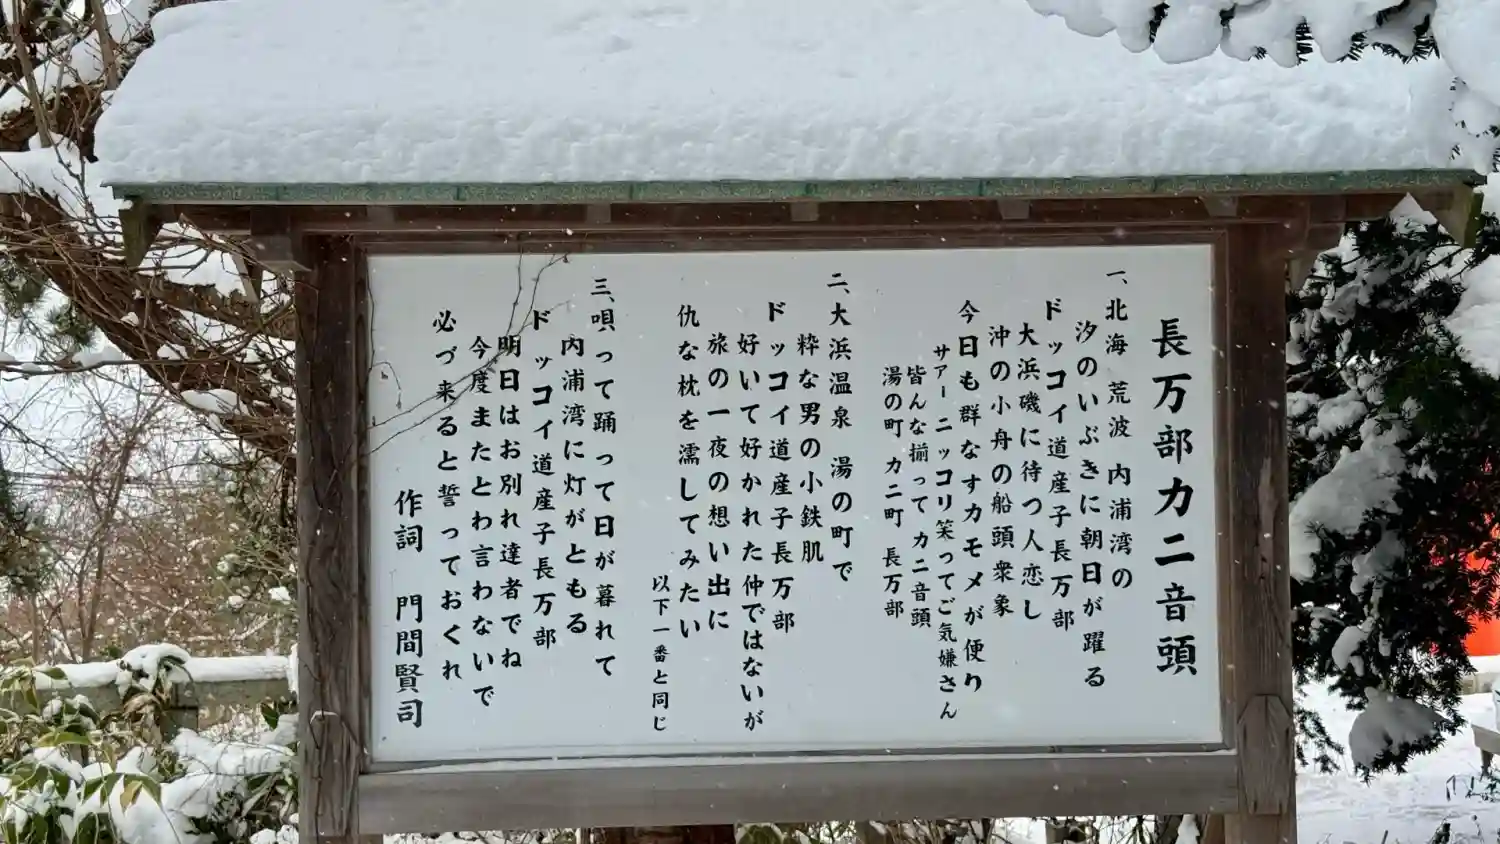 長万部カニ音頭
一、北海 荒波 内浦湾の
汐のいぶきに朝日が躍る
ドッコイ道産子長万部
大浜磯に待つ人恋し
沖の小舟の船頭衆象
今日も群なすカモメが便り
サアーニッコリ笑ってご気嫌さん
皆んな揃って カニ音頭
湯の町 カニ町 長万部
二、大浜温泉 湯の町で
粋な男の小鉄肌
ドッコイ道産子長万部
好いて好かれた仲ではないが
旅の一夜の想い出に
仇な枕を濡してみたい
以下一番と同じ
三、唄って踊って日が暮れて
内浦湾に灯がともる
ドッコイ道産子長万部
明日はお別れ達者でね
今度またとわ言わないで
必づ来ると誓っておくれ
作詞 門間賢司